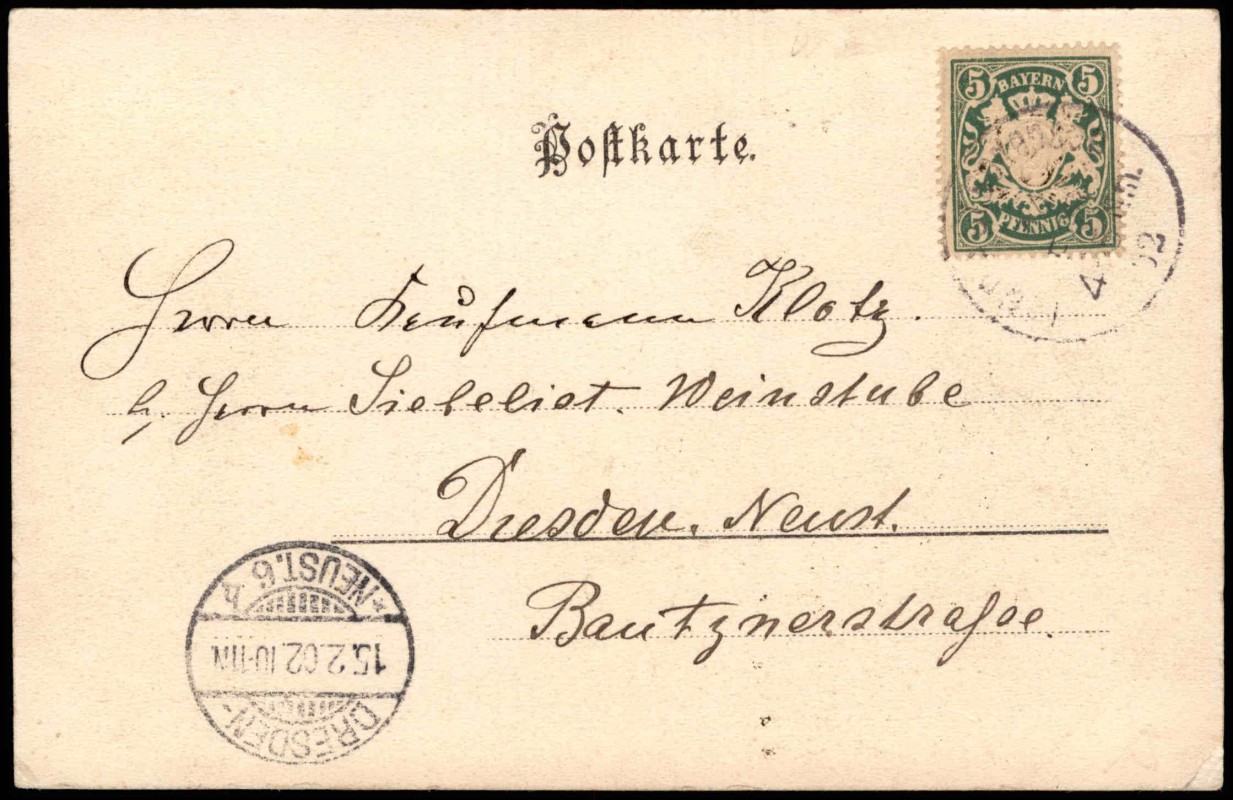 Postkarte.
5 BAYERN 5
5 PFENNIG 5
Herrn Kaufmann Klotz.
b. Herrn Siebelist. Weinstube
Dresden. Neust.
Bautznerstraße.
DRESDEN-
15.2.02.10-11N
*NEUST.6 h